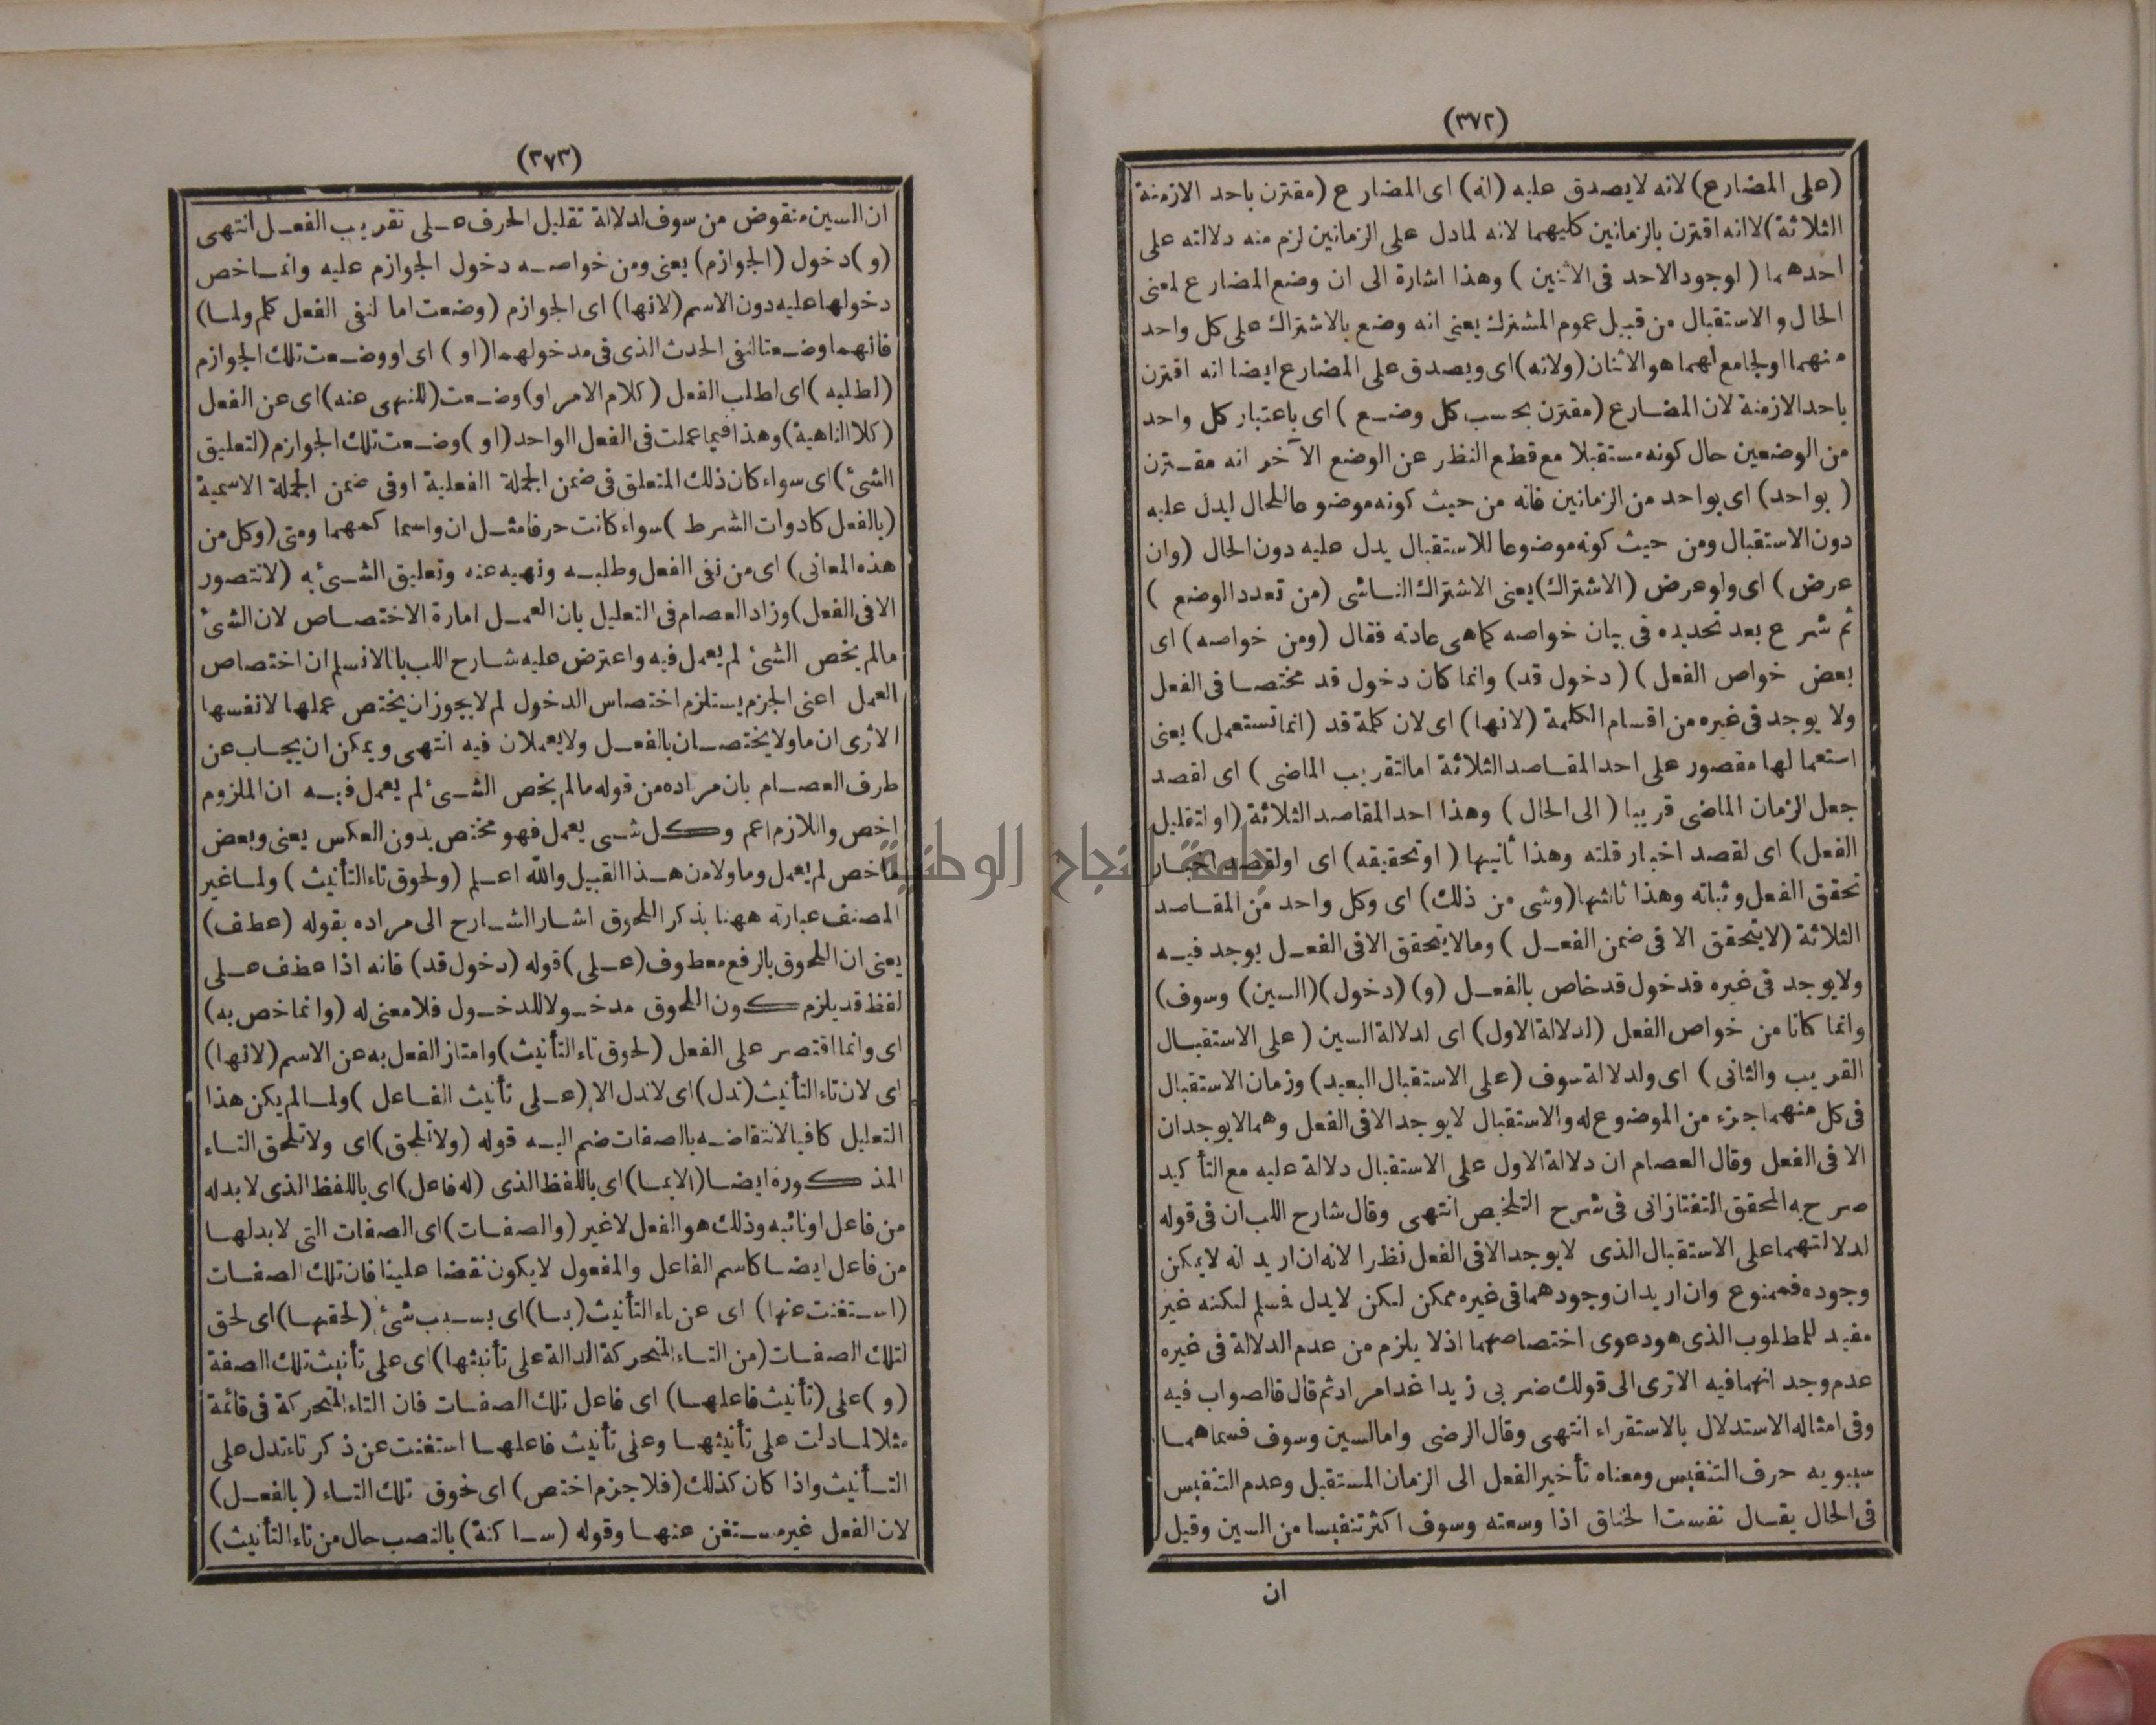 (٣٧٢)
(على المضارع) لانه لايصدق عليه (انه) اى المضارع (مقترن باحد الازمنة
الثلاثة) لاانه اقترن بالزمانين كليهما لانه لمادل على الزمانين لزم منه دلالته على
احدهما (لوجود الاحد فى الاثنين) وهذا اشارة الى ان وضع المضارع لمعنى
الحال والاستقبال من قبيل عموم المشترك يعنى انه وضع بالاشتراك على كل واحد
منهما اولجامع لهما هو الاثنان (ولانه) اى ويصدق على المضارع ايضا انه اقترن
باحد الازمنة لان المضارع (مقترن بحسب كل وضع) اى باعتبار كل واحد
من الوضعين حال كونه مستقبلا مع قطع النظر عن الوضع الآخر انه مقترن
(بواحد) اى بواحد من الزمانين فانه من حيث كونه موضوعا للحال يدل عليه
دون الاستقبال ومن حيث كونه موضوعا للاستقبال يدل عليه دون الحال (وان
عرض) اى ولو عرض (الاشتراك) يعنى الاشتراك الناشى (من تعدد الوضع)
ثم شرع بعد تحديده فى بيان خواصه كماهى عادته فقال (ومن خواصه) اى
بعض خواص الفعل) (دخول قد) وانما كان دخول قد مختصا فى الفعل
ولا يوجد فى غيره من اقسام الكلمة (لانها) اى لان كلمة قد (انما تستعمل) يعنى
استعمالها مقصور على احد المقاصد الثلاثة امالتقريب الماضى) اى لقصد
جعل الزمان الماضى قريبا (الى الحال) وهذا احد المقاصد الثلاثة (او لتقليل
الفعل) اى لقصد اخبار قلته وهذا ثانيها (او تحقيقه) اى اولقصد اخبار
تحقق الفعل وثباته وهذا ثالثها (وشى من ذلك) اى وكل واحد من المقاصد
الثلاثة (لايتحقق الا فى ضمن الفعل) ومالايتحقق الا فى الفعل يوجد فيه
ولايوجد فى غيره فدخول قد خاص بالفعل (و) (دخول) (السين) وسوف)
وانما كانا من خواص الفعل (لدلالة الاول) اى لدلالة السين (على الاستقبال
القريب والثانى) اى ولدلالة سوف (على الاستقبال البعيد) وزمان الاستقبال
فى كل منهما جزء من الموضوع له والاستقبال لايوجد الا فى الفعل وهما لايوجدان
الا فى الفعل وقال العصام ان دلالة الاول على الاستقبال دلالة عليه مع التأكيد
صرح به المحقق التفتازانى فى شرح التلخيص انتهى وقال شارح اللب ان فى قوله
لدلالتهما على الاستقبال الذى لايوجد الا فى الفعل نظرا لانه ان اريد انه لايمكن
وجوده فممنوع وان اريد ان وجودهما فى غيره ممكن لكن لايدل فسلم لكنه غير
مفيد للمطلوب الذى هو دعوى اختصاصهما اذلا يلزم من عدم الدلالة فى غيره
عدم وجدانهما فيه الاترى الى قولك ضربى زيدا غدا مراد ثم قال فالصواب فيه
وفى امثاله الاستدلال بالاستقراء انتهى وقال الرضى واما السين وسوف فسماهما
سيبويه حرف التنفيس ومعناه تأخير الفعل الى الزمان المستقبل وعدم التنفيس
فى الحال يقال نفست الخناق اذا وسعته وسوف اكثر تنفيسا من السين وقيل
ان
(٣٧٣)
ان السين منقوض من سوف لدلالة تقليل الحرف على تقريب الفعل انتهى
(و) دخول (الجوازم) يعنى ومن خواصه دخول الجوازم عليه وانما خص
دخولها عليه دون الاسم (لانها) اى الجوازم (وضعت اما لنفى الفعل كلم ولما)
فانهما وضعتا لنفى الحدث الذى فى مدخولهما (او) اى او وضعت تلك الجوازم
(لطلبه) اى لطلب الفعل (كلام الامر او) وضعت (للنهى عنه) اى عن الفعل
(كلا الناهية) وهذا فيما عملت فى الفعل الواحد (او) وضعت تلك الجوازم (لتعليق
الشئ) اى سواء كان ذلك المتعلق فى ضمن الجملة الفعلية اوفى ضمن الجملة الاسمية
(بالفعل كادوات الشرط) سواء كانت حرفا مثل ان واسما كمهما ومتى (وكل من
هذه المعانى) اى من نفى الفعل وطلبه ونهيه عنه وتعليق الشئ به (لاتتصور
الا فى الفعل) وزاد العصام فى التعليل بان العمل امارة الاختصاص لان الشئ
مالم يخص الشئ لم يعمل فيه واعترض عليه شارح اللب بانا لانسلم ان اختصاص
العمل اعنى الجزم يستلزم اختصاس الدخول لم لايجوز ان يختص عملها لانفسها
الاترى ان ماولا يختصان بالفعل ولايعملان فيه انتهى ويمكن ان يجاب عن
طرف العصام بان مراده من قوله مالم يخص الشئ لم يعمل فيه ان الملزوم
اخص واللازم اعم وكل شى يعمل فهو مختص بدون العكس يعنى وبعض
مااخص لم يعمل وماولا من هذا القبيل والله اعلم (ولحوق تاء التأنيث) ولما غير
المصنف عبارته ههنا بذكر اللحوق اشار الشارح الى مراده بقوله (عطف)
يعنى ان اللحوق بالرفع معطوف (على) قوله (دخول قد) فانه اذا عطف على
لفظ قد يلزم كون اللحوق مدخولا للدخول فلا معنى له (وانما خص به)
اى وانما اقتصر على الفعل (لحوق تاء التأنيث) وامتاز الفعل به عن الاسم (لانها)
اى لان تاء التأنيث (تدل) اى لاتدل الا (على تأنيث الفاعل) ولما لم يكن هذا
التعليل كافيا لانتقاضه بالصفات ضم اليه قوله (ولاتلحق) اى ولاتلحق التاء
المذكورة ايضا (الابما) اى باللفظ الذى (له فاعل) اى باللفظ الذى لابدله
من فاعل اونائبه وذلك هو الفعل لاغير (والصفات) اى الصفات التى لابدلها
من فاعل ايضا كاسم الفاعل والمفعول لايكون نقضا علينا فان تلك الصفات
(استغنت عنها) اى عن تاء التأنيث (بما) اى بسبب شئ (لحقها) اى لحق
لتلك الصفات (من التاء المتحركة الدالة على تأنيثها) اى على تأنيث تلك الصفة
(و) على (تأنيث فاعلها) اى فاعل تلك الصفات فان التاء المتحركة فى قائمة
مثلا لما دلت على تأنيثها وعلى تأنيث فاعلها استغنت عن ذكر تاء تدل على
التأنيث واذا كان كذلك (فلا جزم اختص) اى لحوق تلك التاء (بالفعل)
لان الفعل غير مستغن عنها وقوله (ساكنة) بالنصب حال من تاء التأنيث)
جامعة النجاح الوطنية